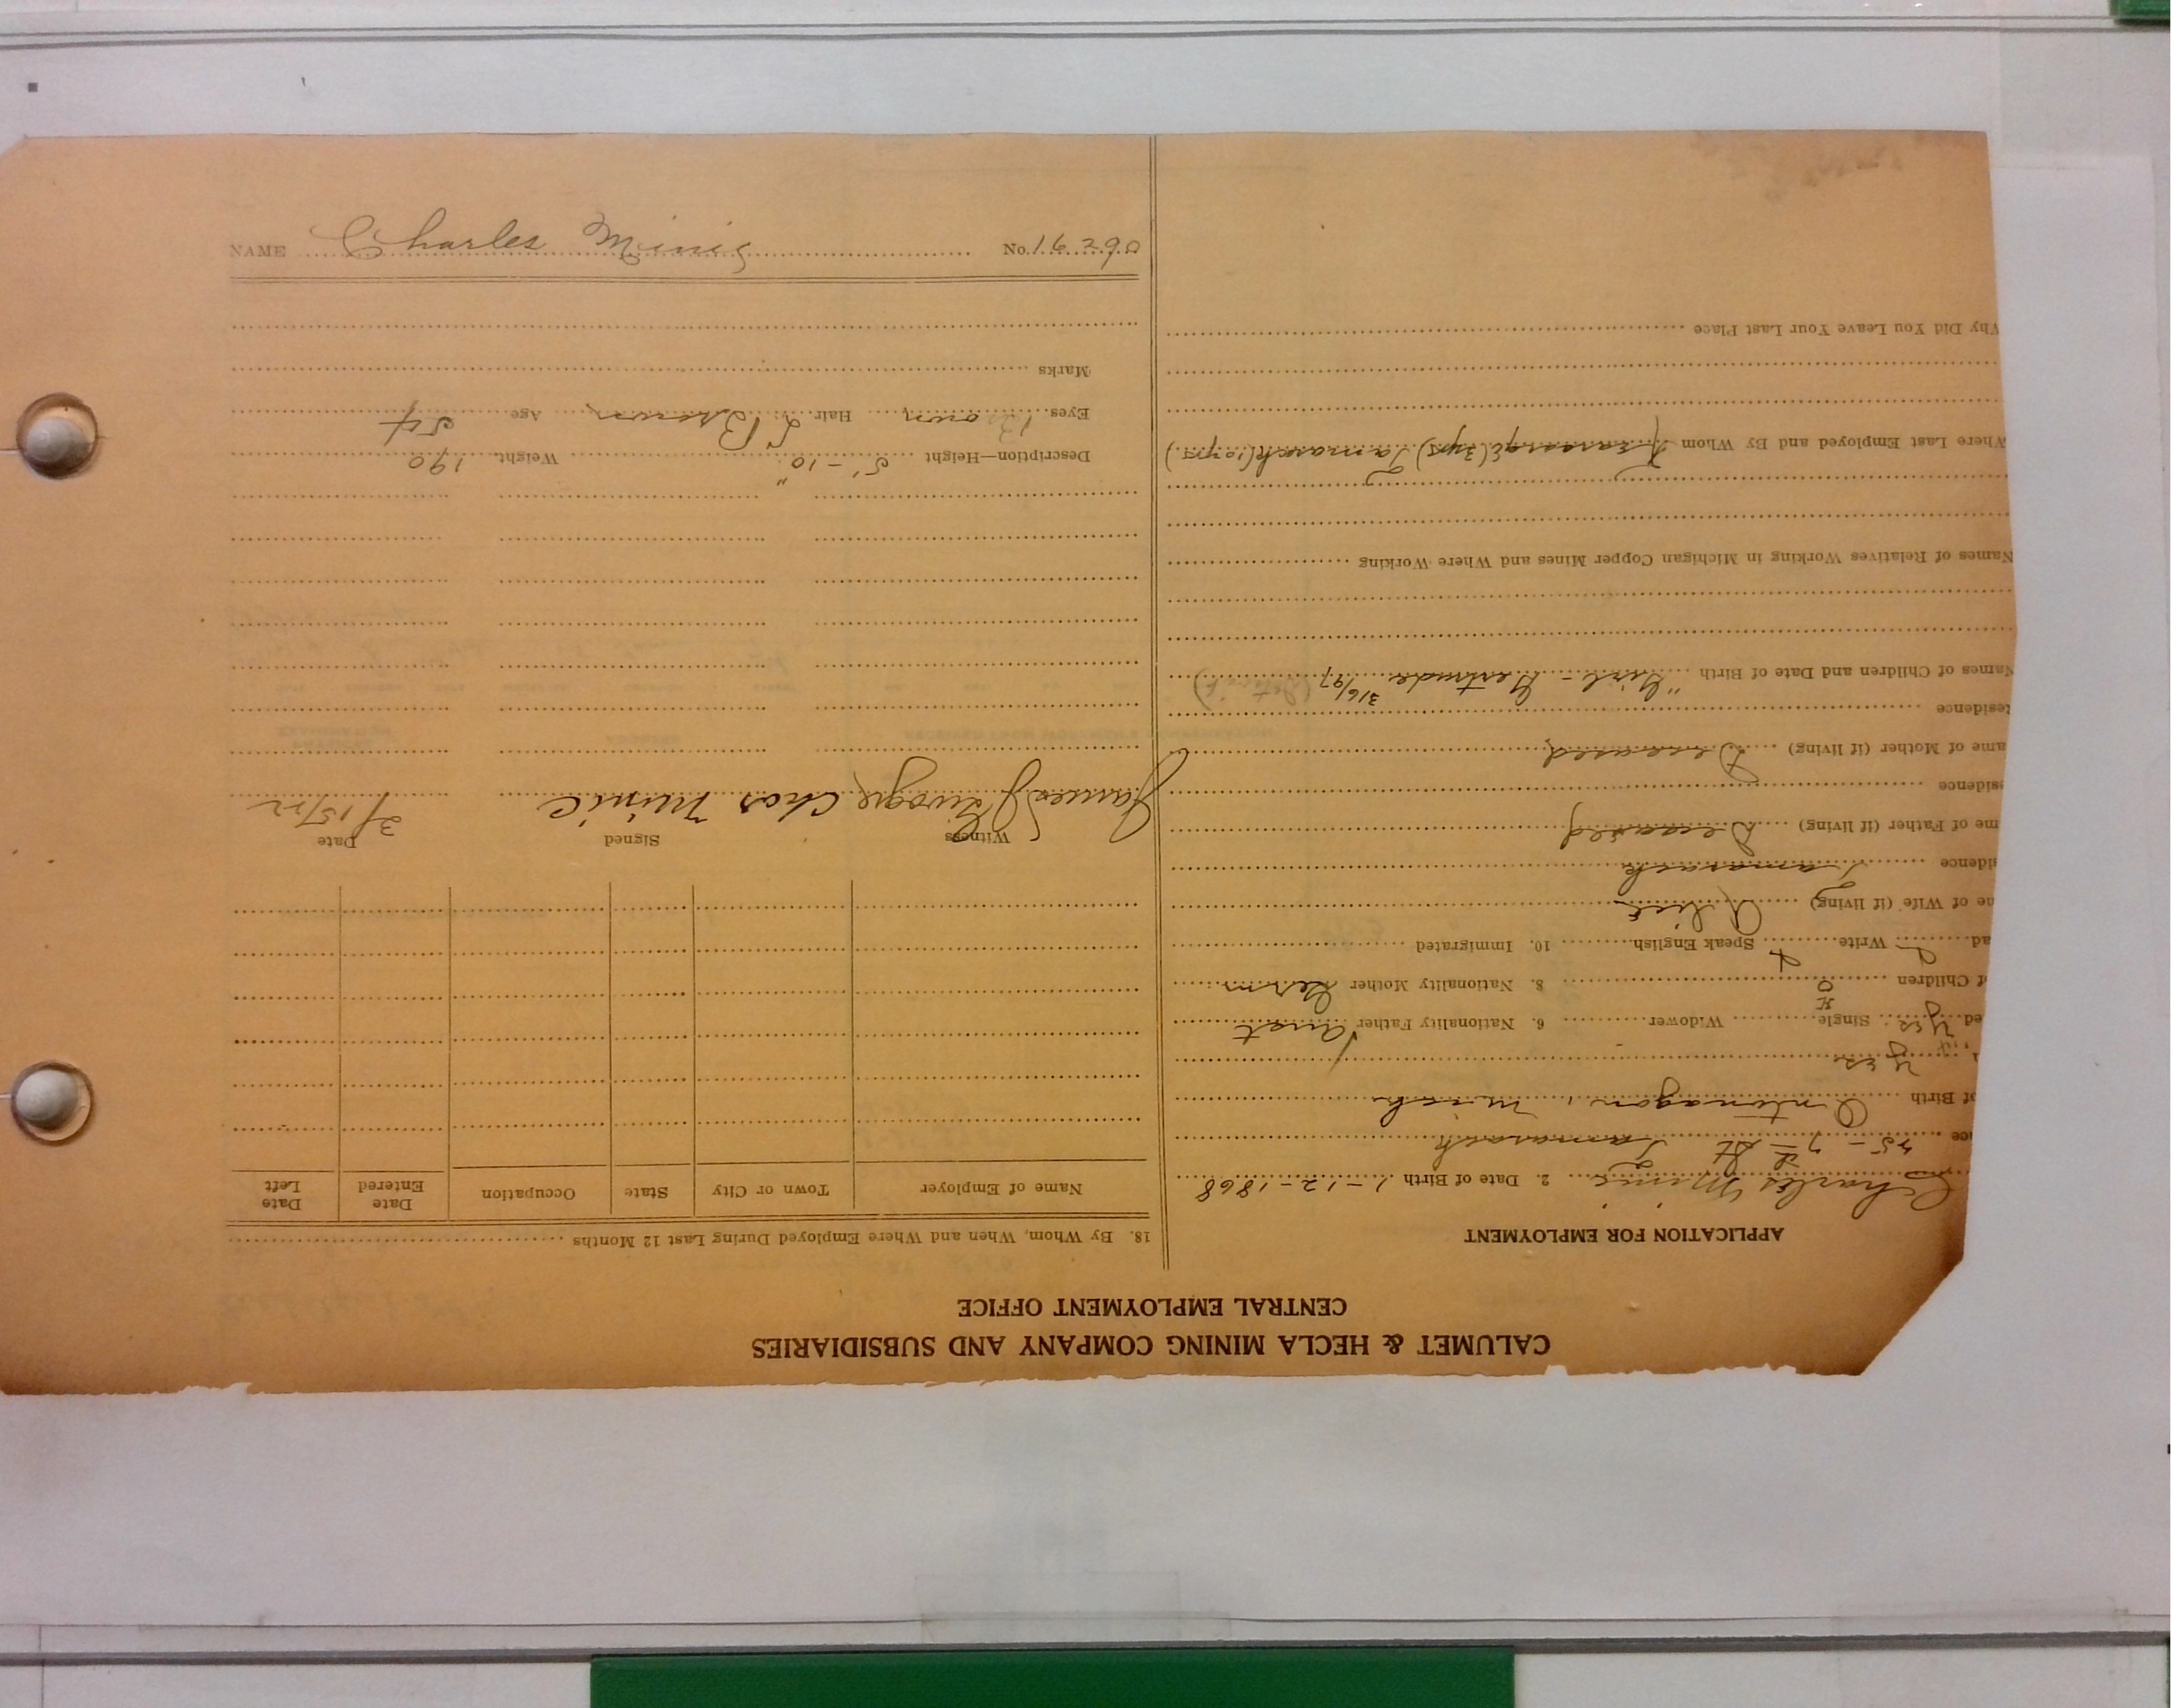 CALUMET & HECLA MINING COMPANY AND SUBSIDIARIES
CENTRAL EMPLOYMENT OFFICE
APPLICATION FOR EMPLOYMENT
Charles Minic 2. Date of Birth 1-12-1868
ce 45-7th St Tamarack
of Birth Ontonagon, Mich
Yes
ed Yes Single Widower 6. Nationality Father Aust
of Children 8. Nationality Mother Germ
ad Write Speak English 10. Immigrated
ne of Wife (if living) Alice
sidence Tamarack
me of Father (if living) Deceased
esidence
ame of Mother (if living) Deceased
Residence
Names of Children and Date of Birth "Girl - Gertrude 3/6/97
Names of Relatives Working in Michigan Copper Mines and Where Working
Where Last Employed and By Whom Kearsarge (3yrs) Tamarack (10yrs.)
Why Did You Leave Your Last Place
18. By Whom, When and Where Employed During Last 12 Months
Name of Employer Town or City State Occupation Date Entered Date Left
Witness Signed Date
James Chas Minic 3/15/22
Description—Height 5'-10" Weight 190
Eyes Brown Hair Brown Age 54
Marks
NAME Charles Minic No. 16290